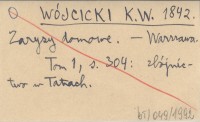 WÓJCICKI K.W. 1842.
Zarysy domowe. — Warszawa.
Tom 1, s. 304: zbójnic-
two w Tatrach.